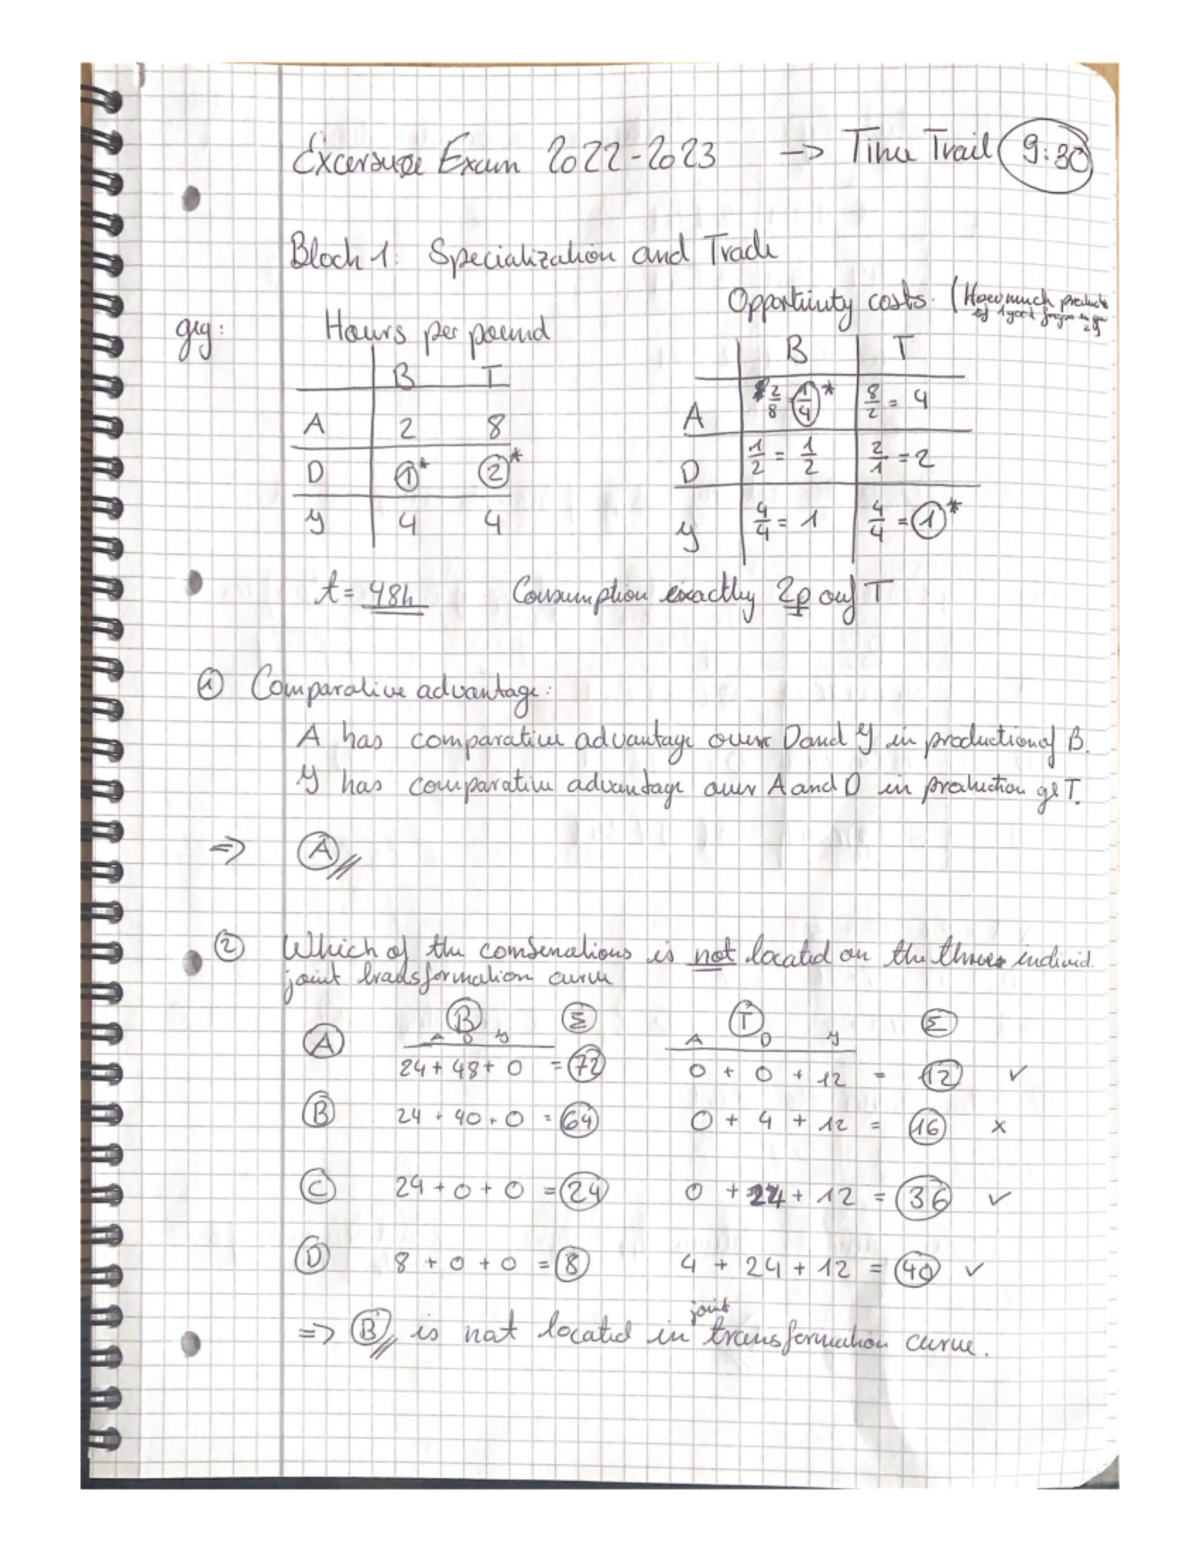 Excersuse Exam 2022-2023 -> Time Trail 9:30
Block 1: Specialization and Trade
Opportunity costs (How much products
of 1 good forgone
geg: Hours per pound
B T
A 2 8
D 1* 2*
y 4 4
B T
A 2/8 1/4* 8/2 = 4
D 1/2 = 1/2 2/1 = 2
y 4/4 = 1 4/4 = 1*
t = 48h Consumption exactly 2p ouf T
① Comparative advantage:
A has comparative advantage over D and y in production of B.
y has comparative advantage over A and D in production of T.
=> A
② Which of the combenations is not located on the three individ.
joint transformation curve
B Σ T Σ
A D y A D y
A 24 + 48 + 0 = 72 0 + 0 + 12 = 12 ✓
B 24 + 40 + 0 = 64 0 + 4 + 12 = 16 x
C 24 + 0 + 0 = 24 0 + 24 + 12 = 36 ✓
D 8 + 0 + 0 = 8 4 + 24 + 12 = 40 ✓
joint
=> B is not located in transformation curve.